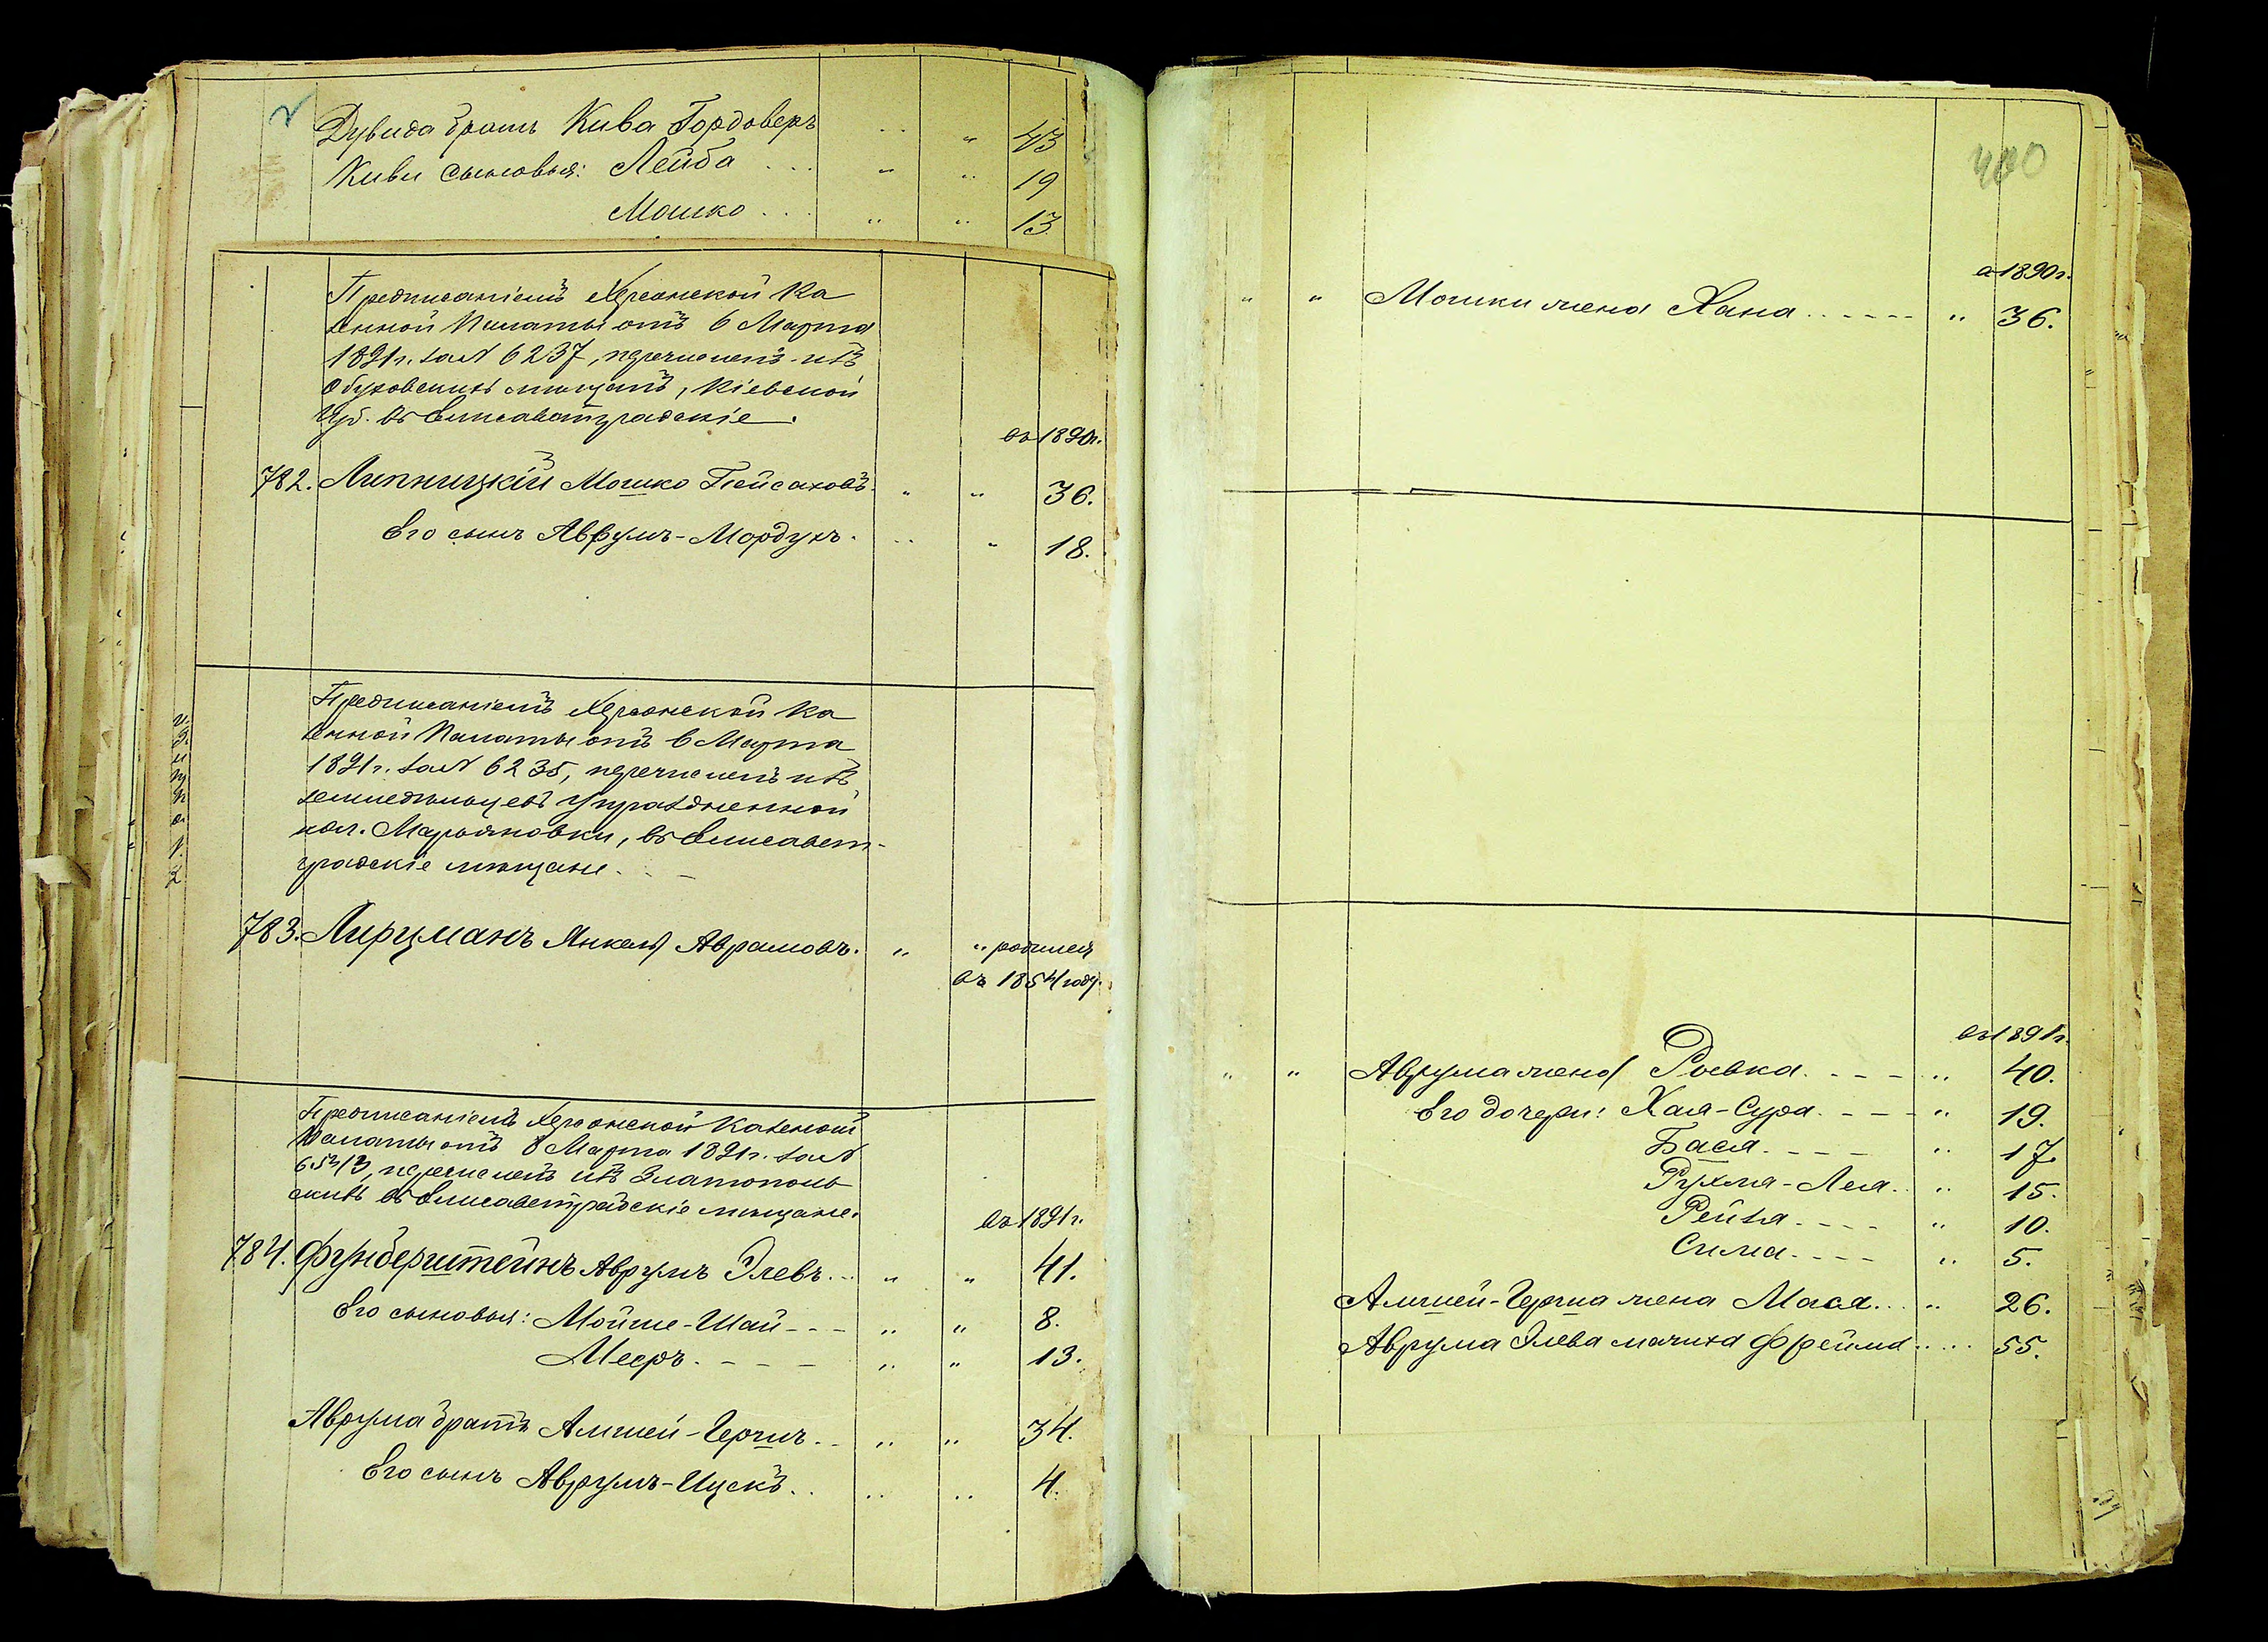 Дувида братъ Кива Гордоверъ " 43
Киви сыновья: Лейба " " 19
Мошко " " 13
Предписаніемъ Херсонской Ка
зенной Палаты отъ 6 Марта
1891г. за № 6237, перечисленъ изъ
Обуховскихъ мѣщанъ, Кіевской
Губ. въ Елисаветградскіе.
въ 1890г.
782. Липницкій Мошко Пейсаховъ " " 36.
Его сынъ Аврумъ-Мордухъ. " " 18.
Предписаніемъ Херсонской Ка
зенной Палаты отъ 6 Марта
1891г. за № 6235, перечисленъ изъ
земледѣльцевъ упраздненной
кол. Марьяновки, въ Елисавет-
градскіе мѣщане.
783. Лирцманъ Янкель Аврамовъ. " " родился
въ 1854 году.
Предписаніемъ Херсонской Казенной
Палаты отъ 8 Марта 1891г. за №
перечисленъ изъ Златополь
скихъ въ Елисаветградскіе мѣщане.
въ 1891г.
784. Фунберштейнъ Аврумъ Элевъ " " 41.
Его сыновья: Мойше-Шай " " 8.
Мееръ " " 13.
Аврума братъ Амшей-Гершъ " " 34.
Его сынъ Аврумъ-Ицекъ " " 4.
400
въ 1890г.
" " Мошки жена Хана " 36.
въ 1891г.
" " Аврума жена Ривка " 40.
Его дочери: Хая-Сура " 19.
Бася " 17.
Рухля-Лея " 15.
Рейзя " 10.
Сима " 5.
Амшей-Герша жена Мася " 26.
Аврума Элева мачиха Фрейма 55.